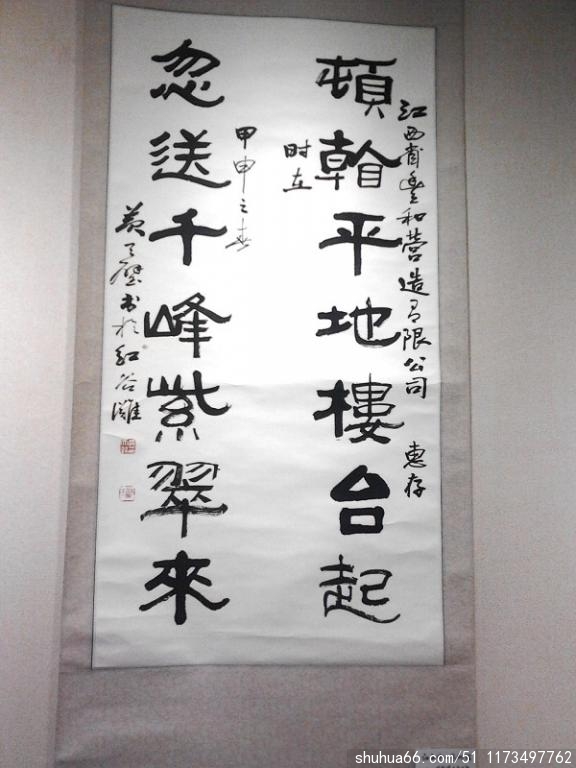 江西省豐和营造有限公司 惠存
頓看平地樓台起
时在
甲申之春
忽送千峰紫翠來
黃天璧书於紅谷灘
shuhua66.com/51 1173497762